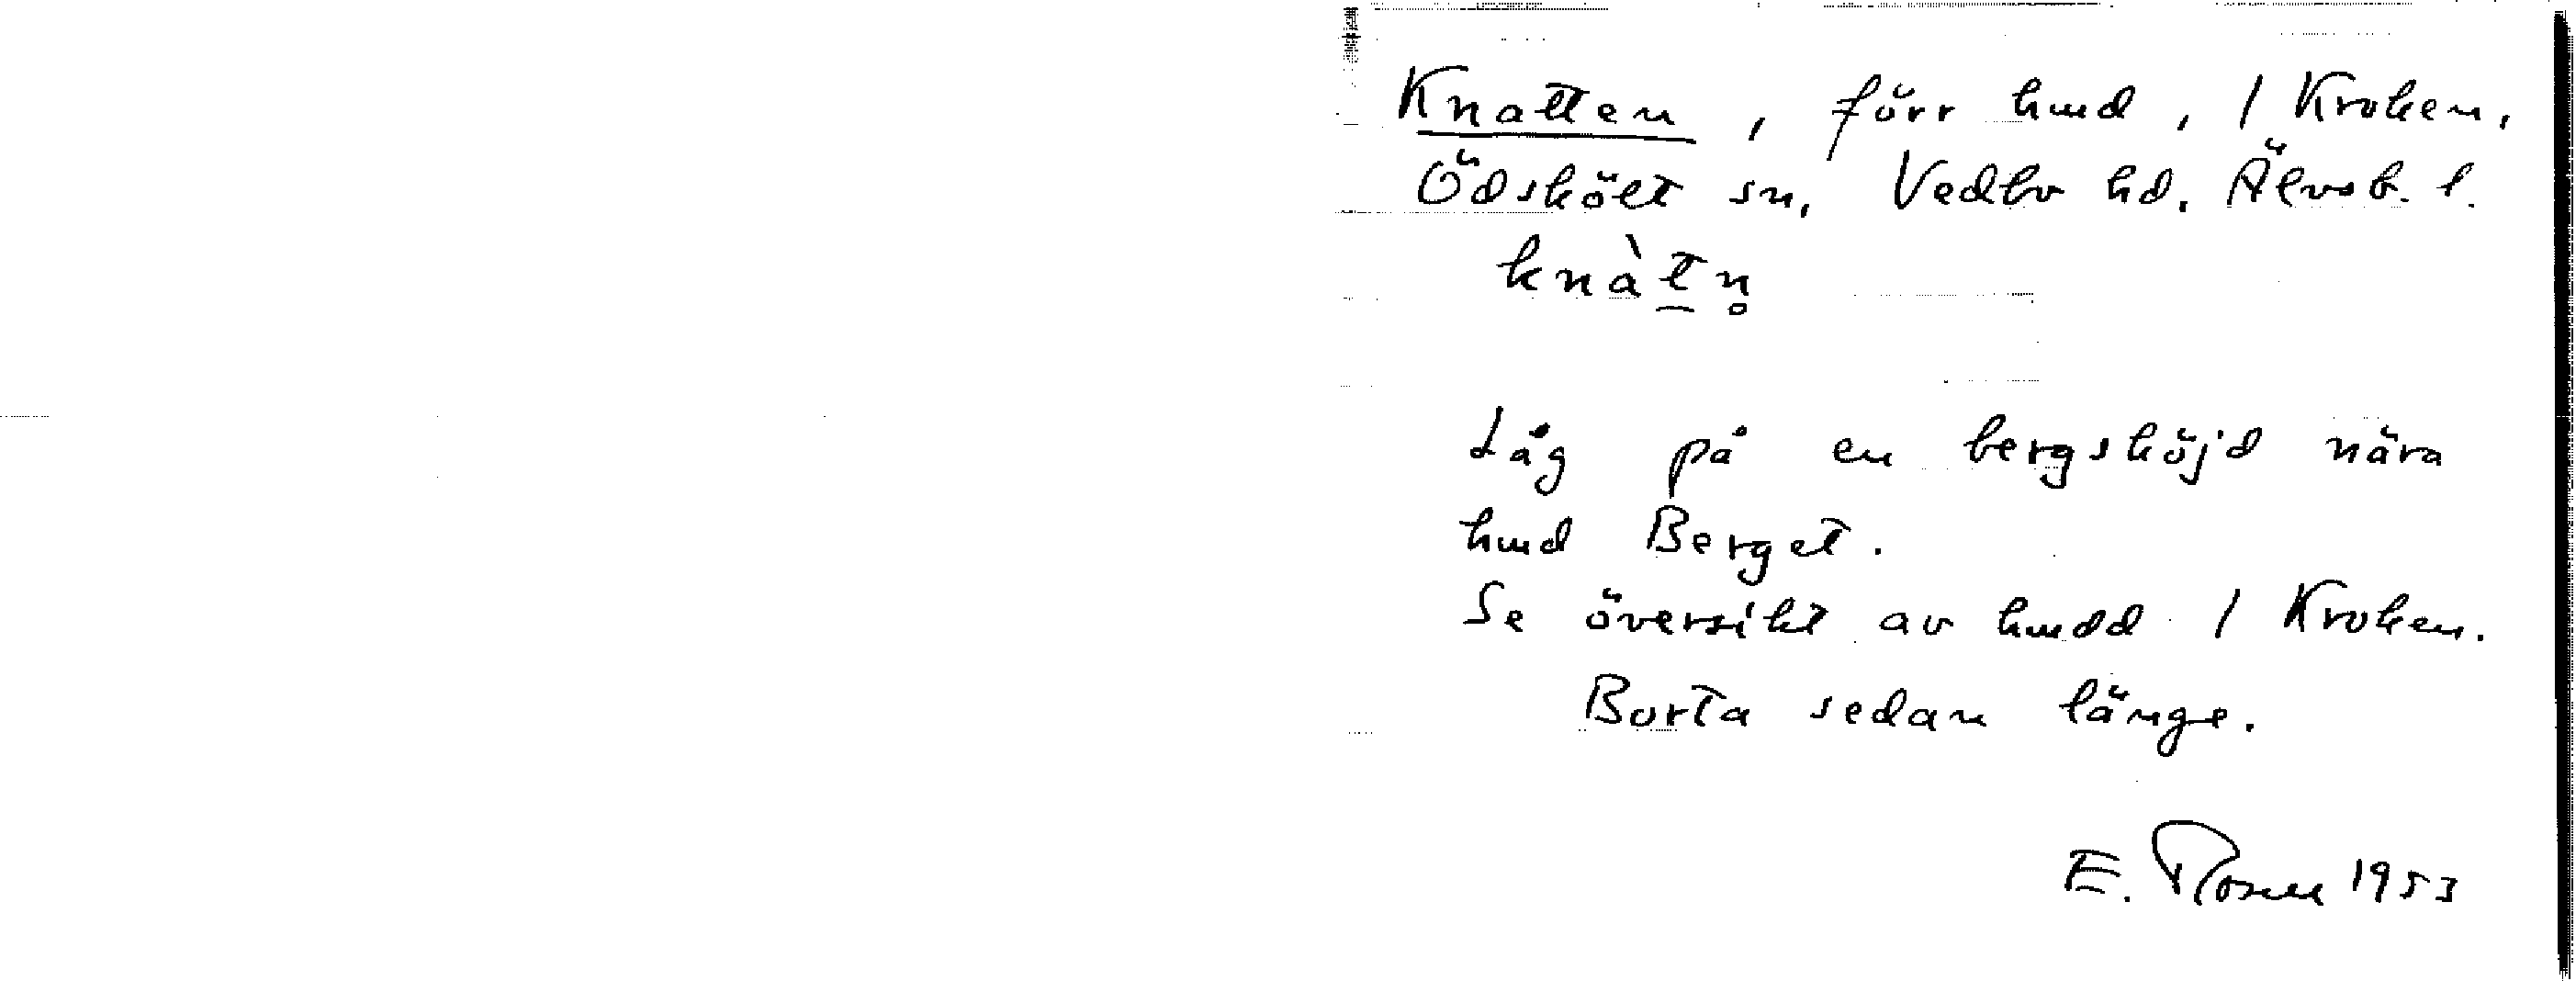 Knatten, förr hmd, 1 Kroken,
Ödskölt sn, Vedbo hd. Älvsb. l.
knàt̲n̥
Låg på en bergshöjd nära
hmd Berget.
Se översikt av hmdd 1 Kroken.
Borta sedan länge.
E. Rosell 1953